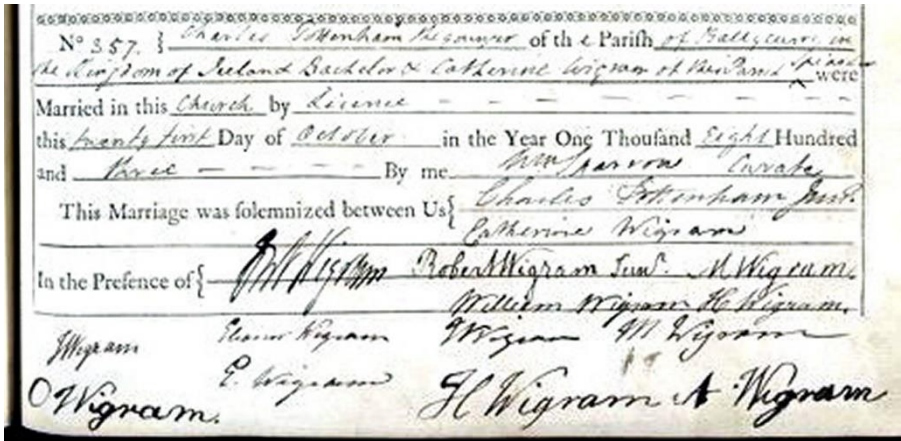 No 357. { Charles Tottenham the younger of the Parish of Ballycurry in
the Kingdom of Ireland Bachelor & Catherine Wigram of this Parish Spinster were
Married in this Church by Licence
this twenty first Day of October in the Year One Thousand Eight Hundred
and three By me Wm Sparrow Curate
This Marriage was solemnized between Us { Charles Tottenham Junr.
Catherine Wigram
In the Presence of { Wigram Robert Wigram Junr. M Wigram.
William Wigram H Wigram.
J Wigram Eleanor Wigram Wigram M Wigram
E. Wigram
O Wigram. H Wigram A. Wigram